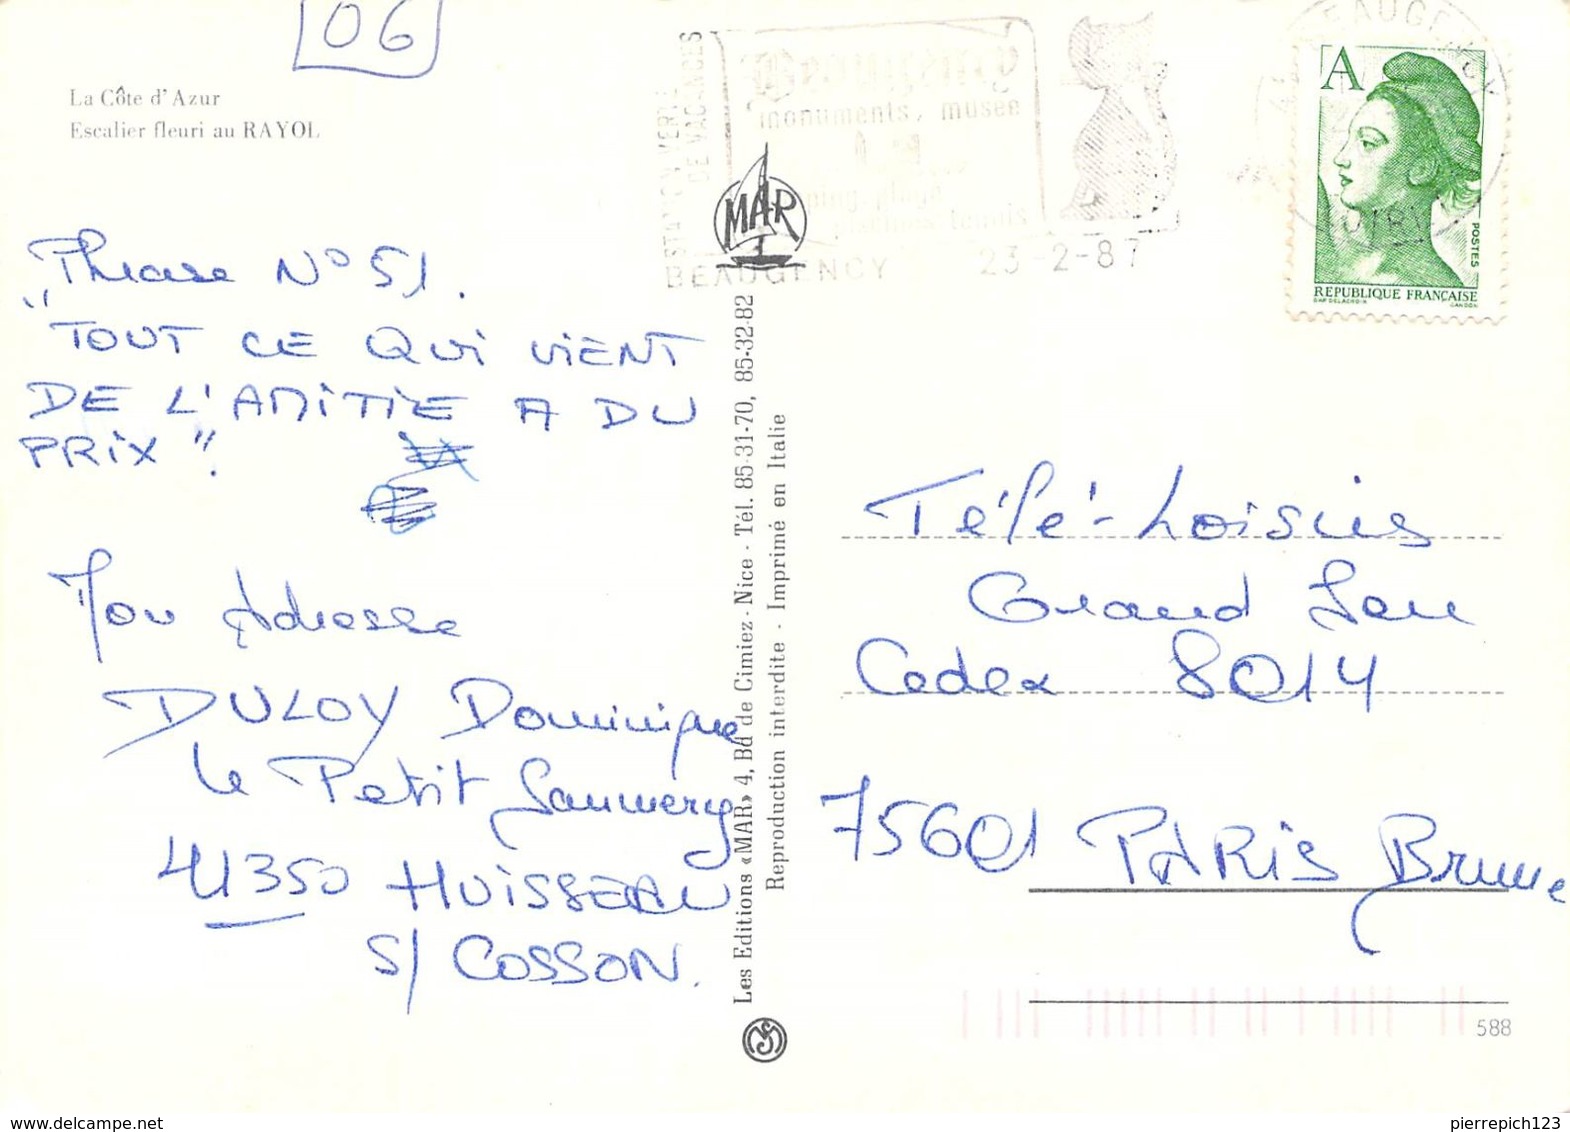 06
La Côte d'Azur
Escalier fleuri au RAYOL
STATION VERTE
DE VACANCES
monuments, musée
piscines tennis
BEAUGENCY 23-2-87
BEAUGENCY
LOIRET
A
POSTES
REPUBLIQUE FRANÇAISE
DAP DELACROIX GANDON
MAR
Phrase N° 51.
"TOUT CE QUi ViENT
DE L'AMiTIE A DU
PRiX".
Mon Adresse
DULOY Dominique
Le Petit Saumery
41350 HUiSSEAU
S/ COSSON.
Les Editions «MAR» 4, Bd de Cimiez - Nice - Tél. 85-31-70, 85-32-82
Reproduction interdite - Imprimé en Italie
Télé-Loisirs
Grand Jeu
Cedex 8014
75601 PARiS Brune
588
pierrepich123